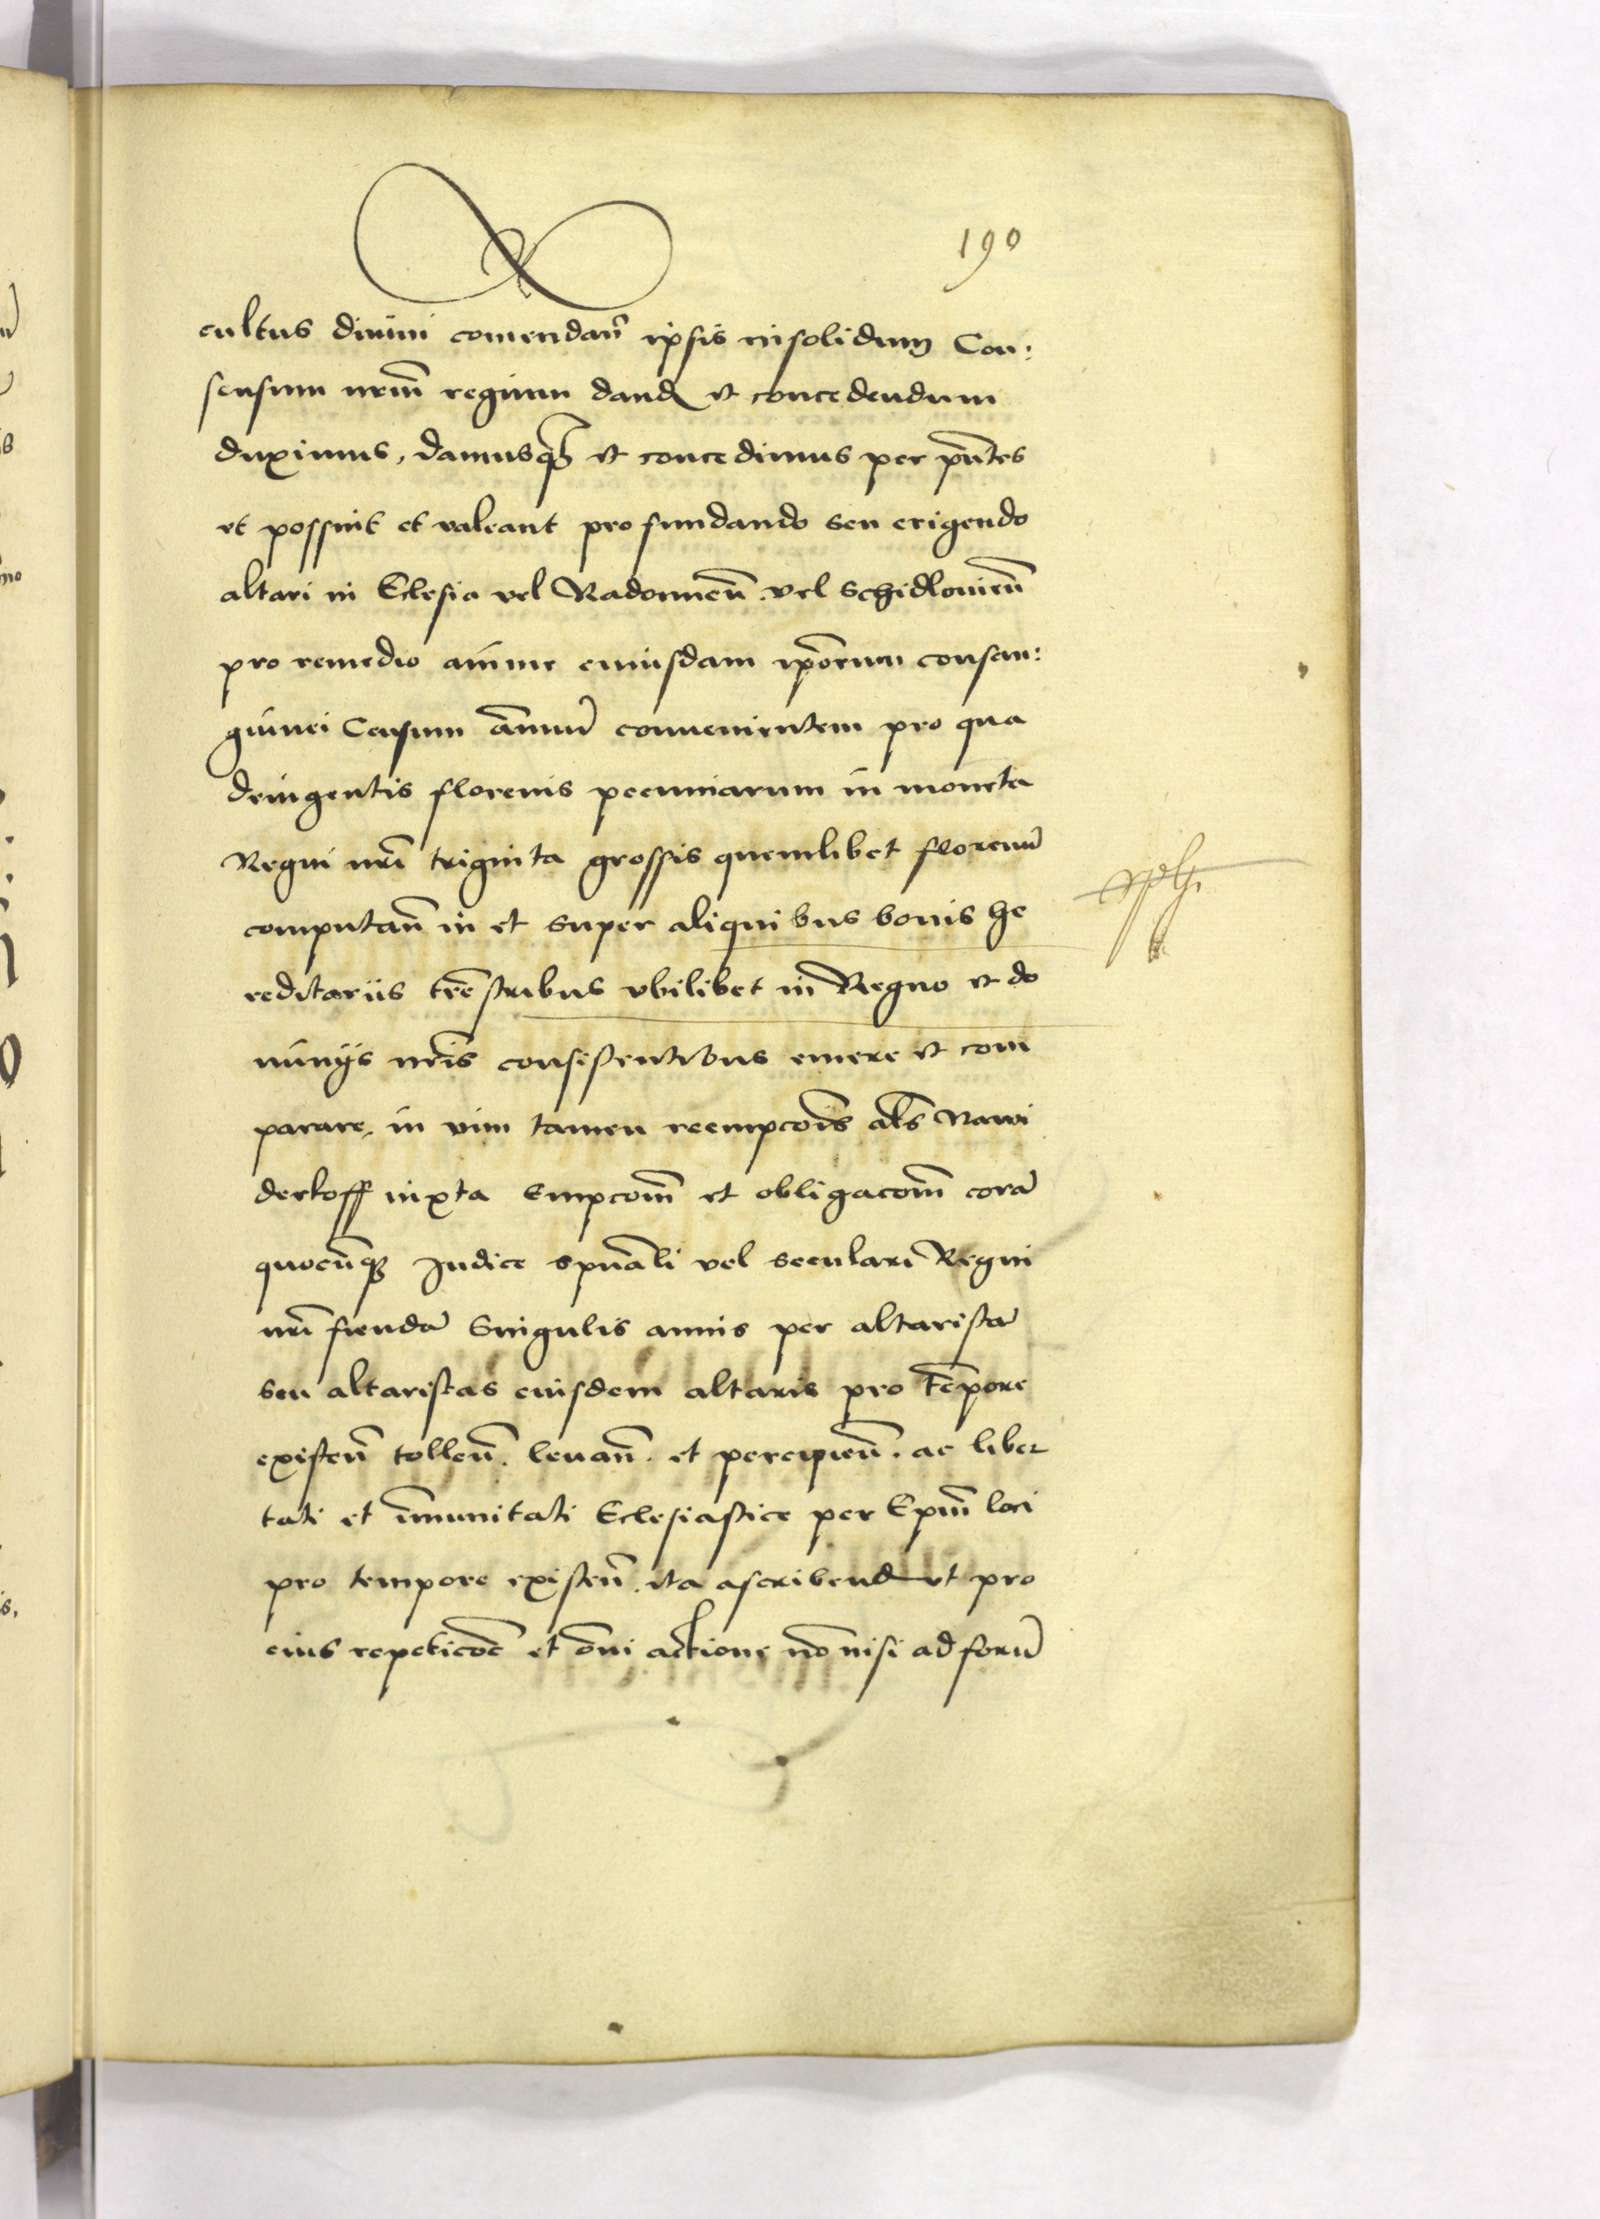 190
cultus diuini comendan̄ ipsis insolidum Con:
sensum nr̄m regium dand et concedendum
duximus, damusq̄ꝫ et concedimus per pn̄tes
vt possint et valeant pro fundando seu erigendo
altari in Eclesia vel Radomien̄ vel Schidlouien̄
pro remedio anime cuiusdam ip̄orum consan:
guinei Censum ānnuū conuenientem pro qua
dringentis florenis pecuniarum in moneta
Regni nr̄i triginta grossis quemlibet florenū
computan̄ in et super aliquibus bonis he
reditariis trēstribus vbilibet in Regno et do
minijs nr̄is consistentibus emere et com
parare, in vim tamen reempcōis al̄s Nawi
derkoff iuxta Empcōm̄ et obligacōm̄ corā
quocūnqꝫ Judice spūali vel seculari Regni
nr̄i fiendā Singulis annis per altaristā
seu altaristas eiusdem altaris pro tēpore
existen̄ tollen̄. leuan̄. et percipien̄. ac liber
tati et im̄unitati Eclesiastice per Ep̄m̄ loci
pro tempore existen̄. ita ascribend vt pro
eius repeticōe et ōni actione nō nisi ad forū